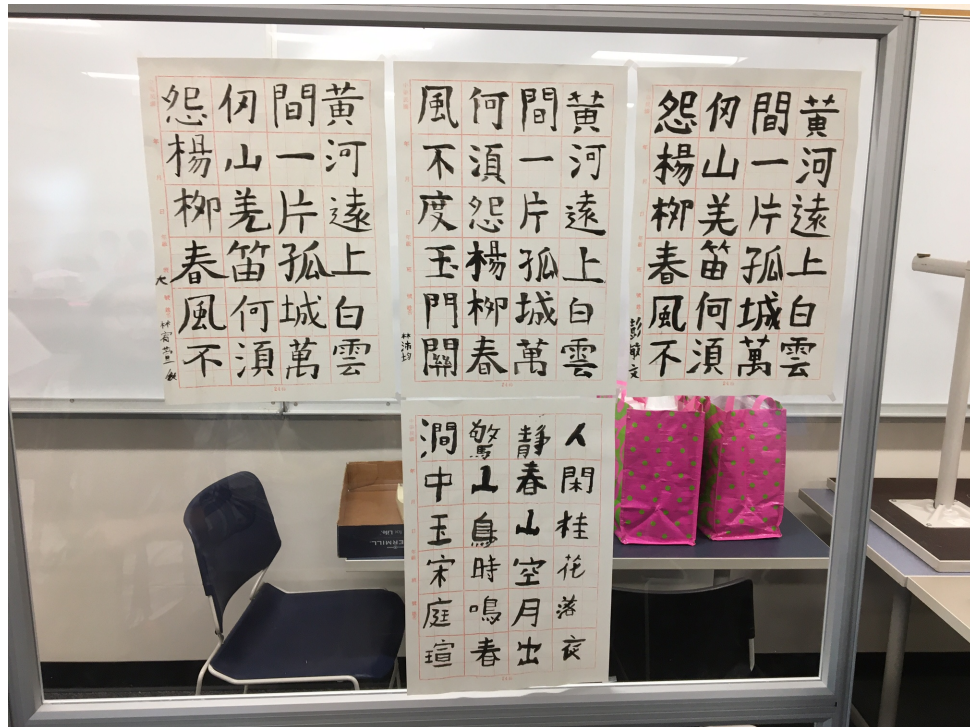 黃河遠上白雲
間一片孤城萬
仞山羌笛何須
怨楊柳春風不
黃河遠上白雲
間一片孤城萬
何須怨楊柳春
風不度玉門關
林沛均
黃河遠上白雲
間一片孤城萬
仞山美笛何須
怨楊柳春風不
彭敏文
人閑桂花落夜
靜春山空月出
驚山鳥時鳴春
澗中玉宋庭瑄
ERMILL